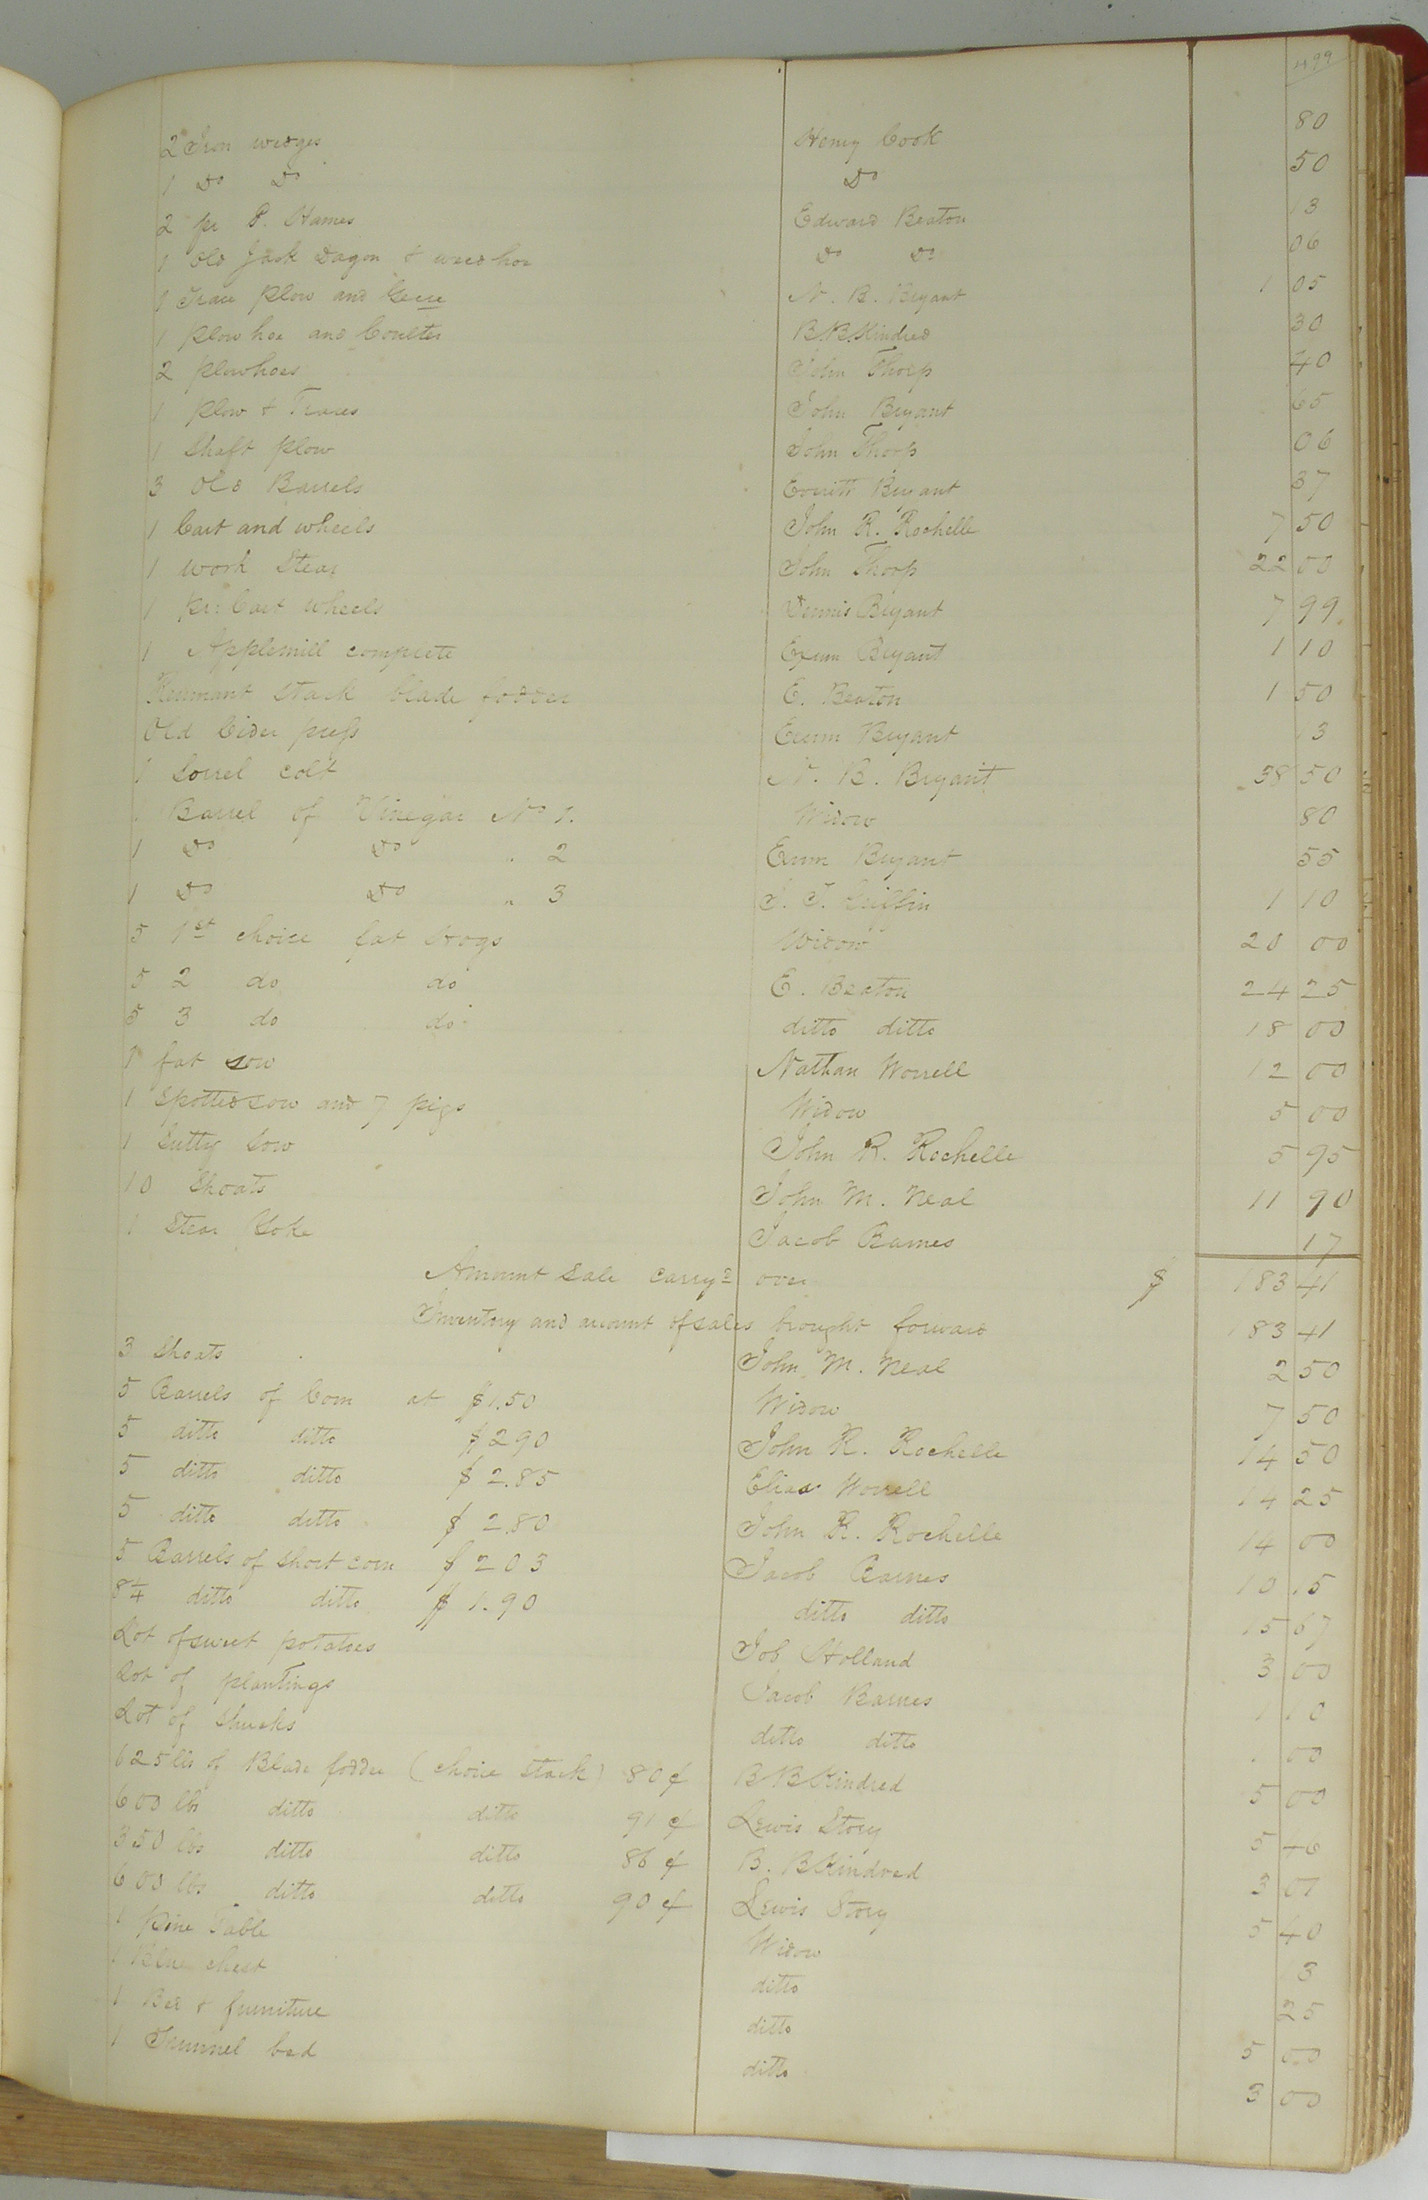 499
2 Iron wedges Henry Cook 80
1 Do Do Do 50
2 pr P. Hames Edward Beaton 13
1 Old Jack Dagon & weedhoe Do Do 06
1 Trace plow and Geere N. B. Bryant 1 05
1 plow hoe and Coulter B.B.Kindred 30
2 plowhoes John Thorp 40
1 plow & Traces John Bryant 65
1 Shaft plow John Thorp 06
3 Old Barrels Everitt Bryant 37
1 Cart and wheels John R. Rochelle 7 50
1 work Stear John Thorp 22 00
1 pr: Cart wheels Dennis Bryant 7 99
1 Applemill complete Exum Bryant 1 10
Remnant stack blade fodder E. Beaton 1 50
Old Cider press Exum Bryant 13
1 Sorrel colt N. B. Bryant 38 50
1 Barrel of Vinegar No 1. Widow 80
1 Do Do " 2 Exum Bryant 55
1 Do Do " 3 J. T. 1 10
5 1st choice fat Hogs Widow 20 00
5 2 do do E. Beaton 24 25
5 3 do do ditto ditto 18 00
1 fat sow Nathan Worrell 12 00
1 Spotted sow and 7 pigs Widow 5 00
1 Sutty Sow John R. Rochelle 5 95
10 Shoats John M. Neal 11 90
1 Stear Yoke Jacob Barnes 17
Amount Sale carryd over $ 183 41
Inventory and amount of sales brought forward 183 41
3 Shoats John M. Neal 2 50
5 Barrels of Corn at $1.50 Widow 7 50
5 ditto ditto $ 290 John R. Rochelle 14 50
5 ditto ditto $ 2.85 Elias Worrell 14 25
5 ditto ditto $ 2.80 John R. Rochelle 14 00
5 Barrels of Short corn $ 203 Jacob Barnes 10 15
8¼ ditto ditto $ 1.90 ditto ditto 15 67
Lot of sweet potatoes Job Holland 3 00
Lot of plantings Jacob Barnes 1 10
Lot of Shucks ditto ditto 1 00
625 lbs of Blade fodder (choice stack) 80¢ B B Kindred 5 00
600 lbs ditto ditto 91¢ Lewis Story 5 46
350 lbs ditto ditto 86¢ B. B Kindred 3 01
600 lbs ditto ditto 90¢ Lewis Story 5 40
1 Pine Table Widow 13
1 Blue chest ditto 25
1 Bed & furniture ditto 5 00
1 Trunnel bed ditto 3 00